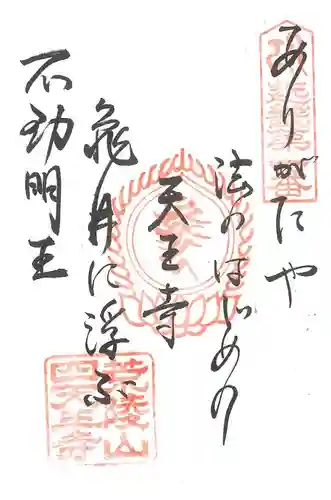 ありがたや
法のはじめの
天王寺
亀井に浮ぶ
不動明王
荒陵山
四天王寺